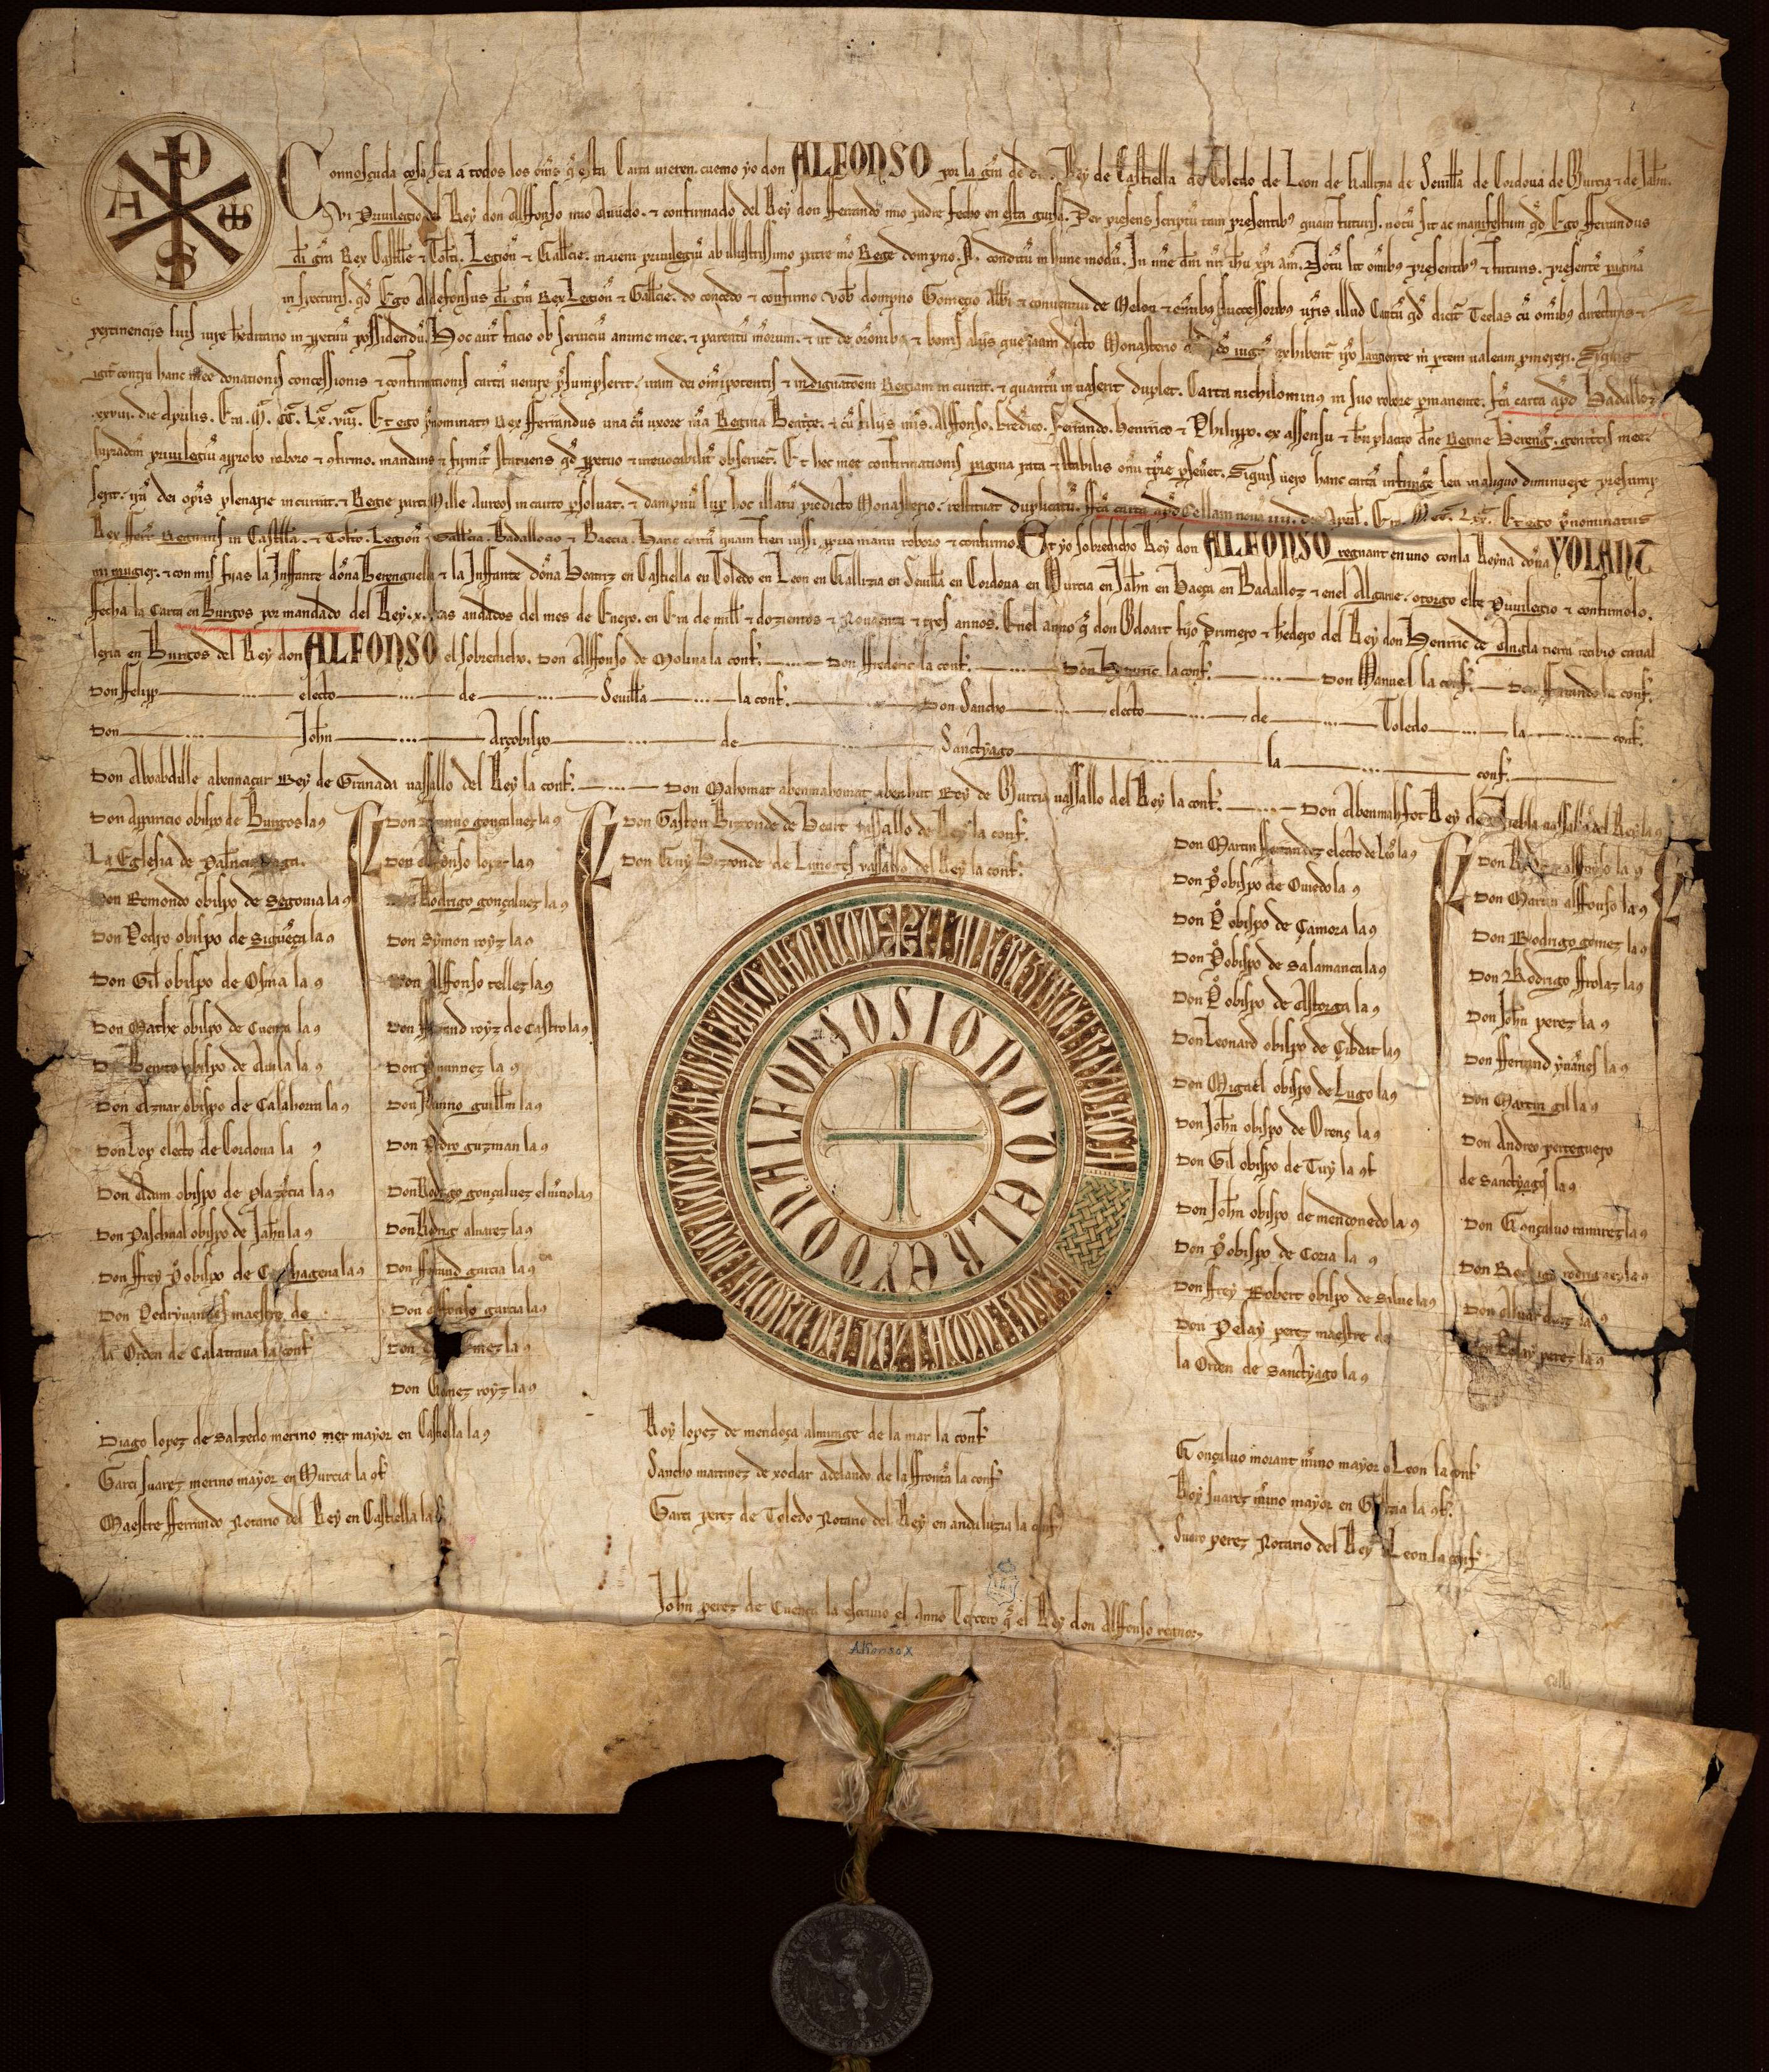 Connosçuda cosa sea a todos los om̃s q̃ esta Carta uieren. cuemo yo don ALFONSO por la grã de Rey de Castiella de Toledo de Leon de Gallizia de Seuilla de Cordoua de Murcia & de Jahñ.
Vi Priuilegio del Rey don Alffonso mio Auuelo. & confirmado del Rey don fferrando mio padre fecho en esta guisa. Per presens scriptũ tam presentibȝ quam futuris. notũ sit ac manifestum qđ Ego fferrandus
đi grã Rex Castelle & Toleti. Legioñ & Gallecie. inueni priuilegiũ ab illustrissimo patre mõ Rege dompno. A. conditũ in hunc modũ. In nñe dñi nr̃i ihũ xp̃i am̃. Notũ sit om̃ibȝ presentibȝ & futuris. presentẽ paginã
inspecturis. qđ Ego Aldefonsus đi grã Rex Legioñ & Gallecie. do concedo & confirmo vob̃ dompno Gomecio Abb̃i & conuentui de Melon & om̃ibȝ successoribȝ ur̃is illud Cautũ qđ dicit̃ Teclas cũ om̃ibȝ directuris &
pertinencijs suis iure hereditario in ꝑpetuũ possidendũ. Hoc aut̃ facio ob remediũ anime mee. & parentũ meorum. & ut de orõnibȝ & bonis alijs que in iam dicto Monasterio
igit̃ contra hanc mee donationis concessionis & confirmationis cartã uenire p̃sumpserit. iram dei om̃ipotentis & indignatioñem Regiam incurrat. & quantũ inuaserit duplet. Carta nichilominȝ in suo robore permanente. fc̃a carta apđ Badalloz
.xxviij. die Aprilis. Era .M.ª CC.ª Lx.ª viij.ª Et ego p̃nominatȝ Rex fferrandus una cũ uxore mea Regina Beatrice. & cũ filijs meis. Alffonso. Frederico. Ferrando. Henrrico & Philippo. ex assensu & bñplacito dñe Regine Bereng̃. genitricis mee.
supradcm̃ priuilegiũ approbo roboro & ꝯfirmo. mandans & firmit̃ statuens qđ ꝑpetuo & irreuocabilit̃ obseruet̃. Et hoc mee confirmationis pagina rata & stabilis om̃i tp̃re perseueret. Siquis uero hanc cartã infringe seu in aliquo diminuere presump
serit. irã dei om̃ipotentis plenarie incurrat. & Regie parti Mille Aureos in cauto persoluat. & dampnũ sup hoc illatũ predicto Monasterio. restituat duplicatũ. ffc̃a carta apđ Cellam noua iiij. die April̃. Era .M.ª CC.ª Lxx.ª Et ego p̃nominatus
Rex fferr̃ Regnans in Castella. & Toleto. Legioñ & Gallecia. Badallocio & Baecia. Hanc cartã quam fieri iussi ꝓpria manu roboro & confirmo. Et yo sobredicho Rey don ALFONSO regnant en uno con la Reyna doña YOLANT
mi mugier. & con mis fijas la Inffante doña Berenguella & la Inffante doña Beatriz en Castiella en Toledo en Leon en Gallizia en Seuilla en Cordoua en Murcia en Jahñ en Baeça en Badalloz & enel Algarue. otorgo este Priuilegio & confirmolo.
Fecha la Carta en Burgos por mandado del Rey .x. dias andados del mes de Enero. en Era de mill & dozientos & Nouaenta & tres annos. Enel anno q̃ don Odoart fijo Primero & hedero del Rey don Henrric de Angla tierra recibio caual
leria en Burgos del Rey don ALFONSO el sobredicho. Don Alffonso de Molina la conf. Don ffrederic la conf. Don Henrric la conf. Don Manuel la conf. Don fferrando la conf.
Don ffelipp electo de Seuilla la conf. Don Sancho electo de Toledo la conf.
Don Johñ Arçobispo de Sanctyago la conf.
Don Aboabdille abennaçar Rey de Granada uassallo del Rey la conf. Don Mahomat abenmahomat abenhut Rey de Murcia uassallo del Rey la conf. Don Abenmahfot Rey de Niebla uassallo del Rey la ꝯ
Don Apparicio obispo de Burgos la ꝯ
La Eglesia de Palencia uaga.
Don Remondo obispo de Segouia la ꝯ
Don Pedro obispo de Siguẽça la ꝯ
Don Gil obispo de Osma la ꝯ
Don Mathe obispo de Cuenca la ꝯ
Don Benito obispo de Auila la ꝯ
Don Aznar obispo de Calahorra la ꝯ
Don Lop electo de Cordoua la ꝯ
Don Adam obispo de plazẽcia la ꝯ
Don Paschual obispo de Jahñ la ꝯ
Don ffrey P̃o obispo de Carthagena la ꝯ
Don Pedryuanes maestre de
la Orden de Calatraua la conf
Don Nunno gonçaluez la ꝯ
Don Alffonso lopez la ꝯ
Don Rodrigo gonçaluez la ꝯ
Don Symon royz la ꝯ
Don Alffonso tellez la ꝯ
Don fferrand royz de Castro la ꝯ
Don P̃ nunnez la ꝯ
Don Nunno guillem la ꝯ
Don Pedro guzman la ꝯ
Don Rodrigo gonçaluez el nino la ꝯ
Don Rodrig aluarez la ꝯ
Don fferrand garcia la ꝯ
Don Alffonso garcia la ꝯ
Don Gomez royz la ꝯ
Don Gaston Bizconde de Beart uassallo del Rey la conf.
Don Guy Bizconde de Limoges uassallo del Rey la conf.
SIGNO DEL REY DON ALFONSO
Don Martin fferrandez electo de Leõ la ꝯ
Don P̃o obispo de Ouiedo la ꝯ
Don P̃ obispo de Çamora la ꝯ
Don P̃o obispo de Salamanca la ꝯ
Don P̃o obispo de Astorga la ꝯ
Don Leonard obispo de Cibdat la ꝯ
Don Miguel obispo de Lugo la ꝯ
Don Johñ obispo de Orens la ꝯ
Don Gil obispo de Tuy la ꝯf
Don Johñ obispo de mendonedo la ꝯ
Don P̃o obispo de Coria la ꝯ
Don ffrey Robert obispo de Silue la ꝯ
Don Pelay perez maestre de
la Orden de Sanctyago la ꝯ
Don Rodrigo alffonso la ꝯ
Don Martin alffonso la ꝯ
Don Rodrigo gomez la ꝯ
Don Rodrigo ffrolaz la ꝯ
Don Johñ perez la ꝯ
Don fferrand yuañes la ꝯ
Don Martin gil la ꝯ
Don Andreo perteguero
de Sanctyago la ꝯ
Don Gonçaluo ramirez la ꝯ
Don Rodrigo rodriguez la ꝯ
Don Aluar diaz la ꝯ
Don Pelay perez la ꝯ
Diago lopez de Salzedo merino mayor en Castiella la ꝯ
Garci Suarez merino mayor en Murcia la ꝯf
Maestre fferrando Notario del Rey en Castiella la
Roy lopez de mendoça almirage de la mar la conf
Sancho martinez de xodar adelantado de la ffrontera la conf
Garci perez de Toledo Notario del Rey en andaluzia la conf
Gonçaluo morant merino mayor de Leon la conf
Roy Suarez merino mayor en Gallizia la ꝯf.
Suero perez Notario del Rey en Leon la conf
Johñ perez de Cuenca la escriuio el Anno Tercero q̃ el Rey don Alffonso regno.
Alfonso X